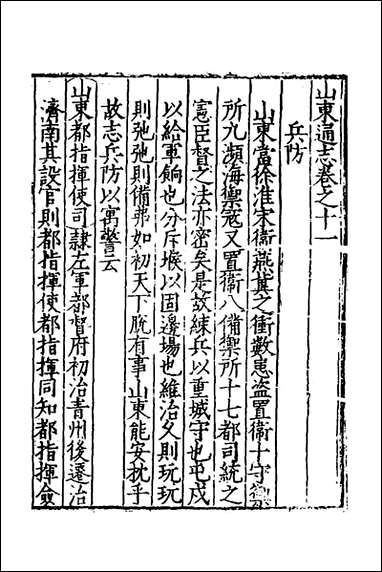 山東通志卷之十一
兵防
山東當徐淮宋衞燕冀之衝數患盜置衞十守禦
所九瀕海禦寇又置衞八備禦所十七都司統之
憲臣督之法亦密矣是故練兵以重城守也屯戍
以給軍餉也分斥堠以固邊場也維治久則玩玩
則弛弛則備弗如初天下脫有事山東能安枕乎
故志兵防以寓警云
山東都指揮使司隸左軍都督府初治青州後遷治
濟南其設官則都指揮使都指揮同知都指揮僉